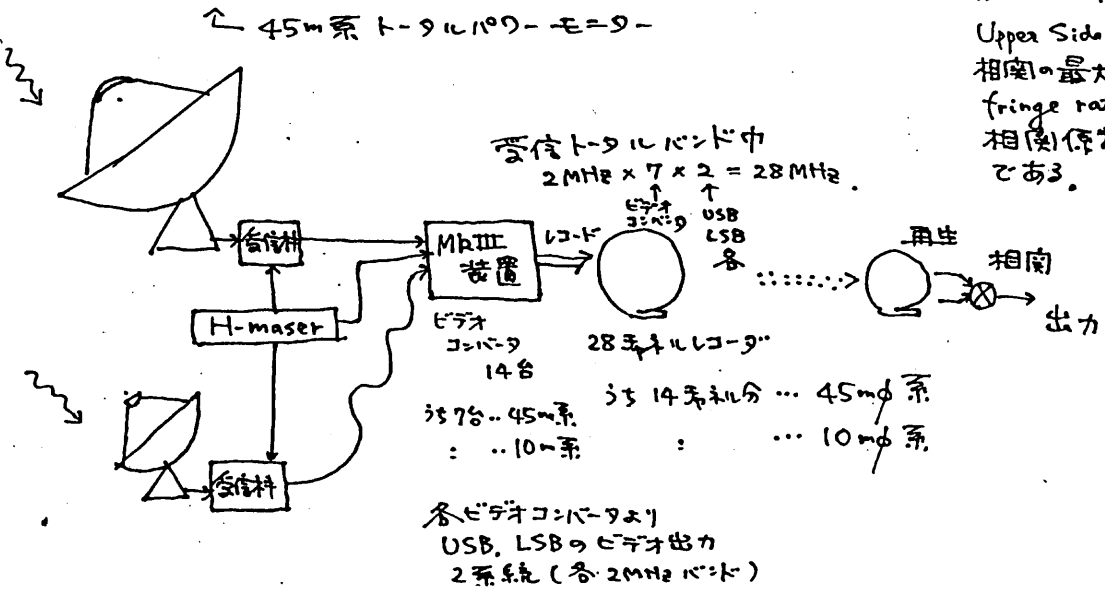 45m系 トータルパワーモニター
Upper Side
相関の最大
fringe ra
相関係
である。
受信トータルバンド巾
2MHz × 7 × 2 = 28MHz.
ビデオ
コンバータ
USB
LSB
各
受信機
MkIII
装置
レコード
再生
相関
出力
H-maser
ビデオ
コンバータ
14台
28チャネルレコーダ
うち7台‥45m系
: ‥10m系
うち 14チャネル分 … 45mφ系
: … 10mφ系
受信機
各ビデオコンバータより
USB, LSBのビデオ出力
2系統 (各2MHzバンド)